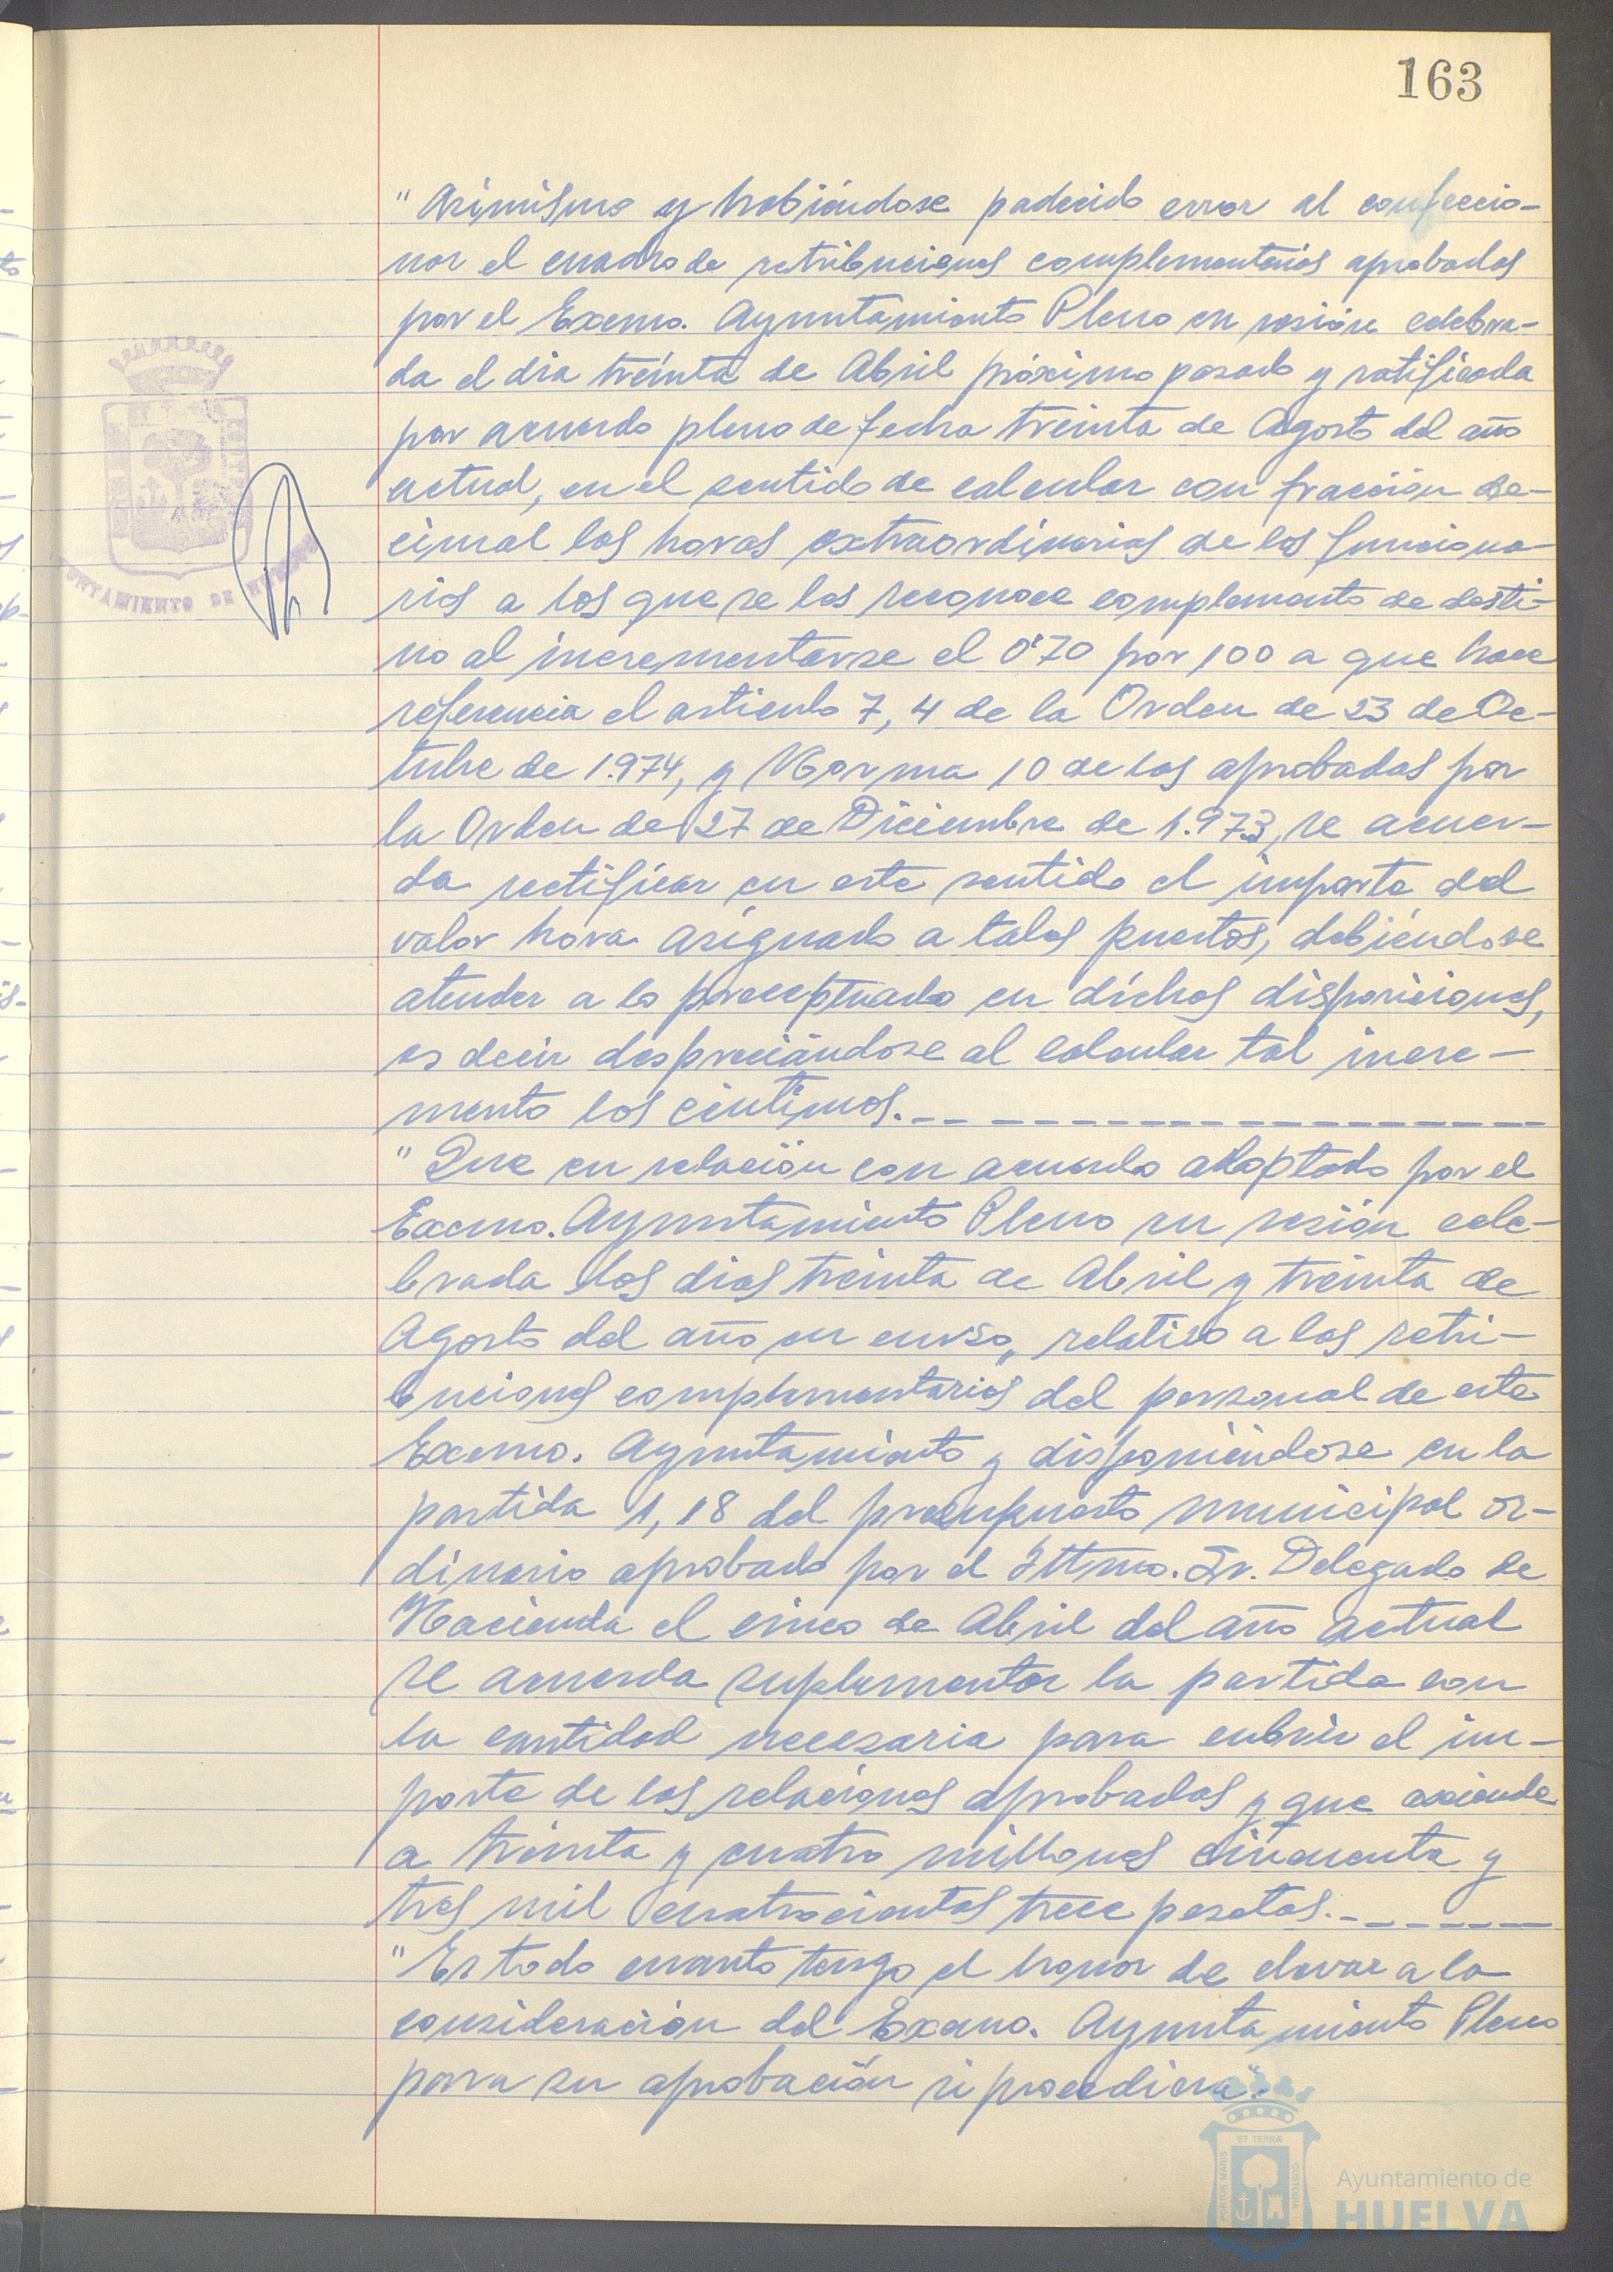 163
"Asimismo y habiéndose padecido error al confeccio-
nar el cuadro de retribuciones complementarias aprobadas
por el Excmo. Ayuntamiento Pleno en sesión celebra-
da el dia treinta de Abril próximo pasado y ratificada
por acuerdo pleno de fecha treinta de Agosto del año
actual, en el sentido de calcular con fracción de-
cimal las horas extraordinarias de los funciona-
rios a los que se les reconoce complemento de desti-
no al incrementarse el 0'70 por 100 a que hace
referencia el articulo 7, 4 de la Orden de 23 de Oc-
tubre de 1.974, y Norma 10 de las aprobadas por
la Orden de 27 de Diciembre de 1.973, se acuer-
da rectificar en este sentido el importe del
valor hora asignado a tales puestos, debiéndose
atender a lo preceptuado en dichas disposiciones,
es decir despreciándose al calcular tal incre-
mento los céntimos.
"Que en relación con acuerdo adoptado por el
Excmo. Ayuntamiento Pleno en sesión cele-
brada los dias treinta de Abril y treinta de
Agosto del año en curso, relativo a las retri-
buciones complementarias del personal de este
Excmo. Ayuntamiento y disponiéndose en la
partida 1, 18 del presupuesto municipal or-
dinario aprobado por el Iltmo. Sr. Delegado de
Hacienda el cinco de Abril del año actual
se acuerda suplementar la partida con
la cantidad necesaria para cubrir el im-
porte de las relaciones aprobadas y que asciende
a treinta y cuatro millones cincuenta y
tres mil cuatrocientas trece pesetas.
"Es todo cuanto tengo el honor de elevar a la
consideración del Excmo. Ayuntamiento Pleno
para su aprobación si procediera".
AYUNTAMIENTO DE HUELVA
PORTUS MARIS
ET TERRÆ
CUSTODIA
Ayuntamiento de
HUELVA